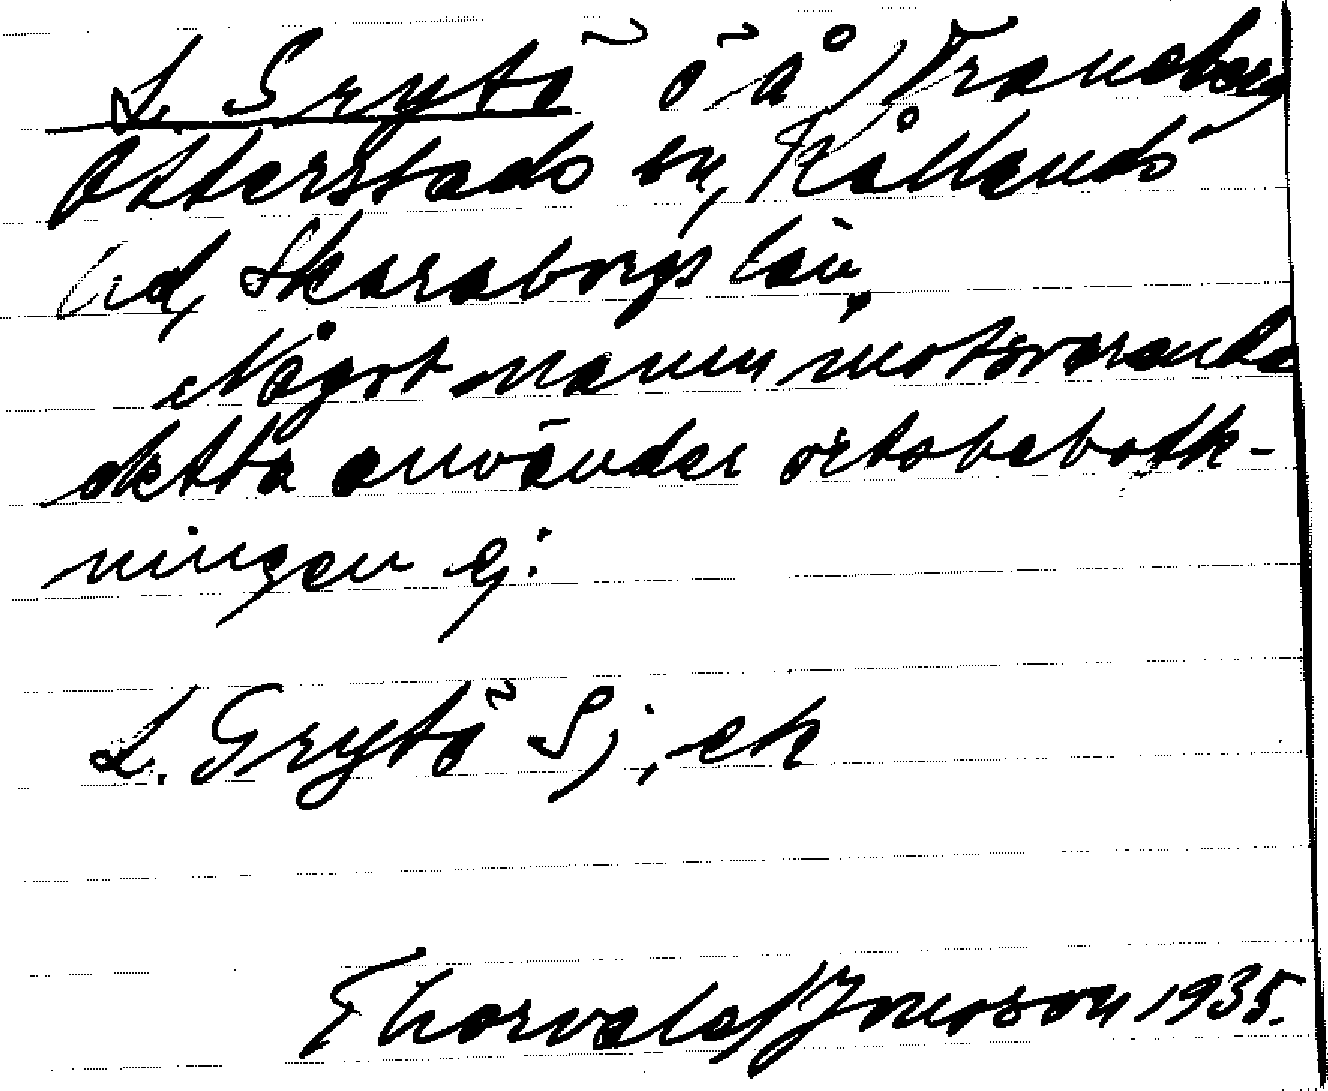 L. Grytö ö å Traneberg
Otterstads sn, Kållands
hd, Skaraborgs län,
Något namn motsvarande
detta använder ortsbebofk-
ningen ej.
L. Grytö Sj, ek
Thorvald Jonsson 1935.